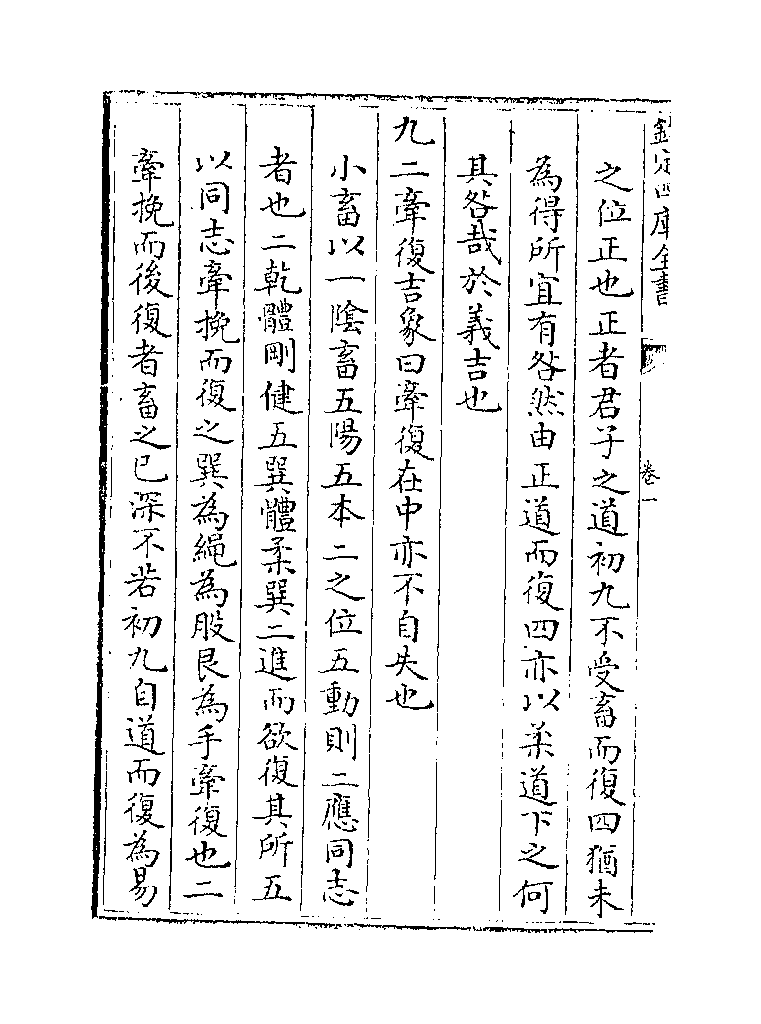 欽定四庫全書
卷一
之位正也正者君子之道初九不受畜而復四猶未
為得所宜有咎然由正道而復四亦以柔道下之何
其咎哉於義吉也
九二牽復吉象曰牽復在中亦不自失也
小畜以一隂畜五陽五本二之位五動則二應同志
者也二乾體剛健五巽體柔巽二進而欲復其所五
以同志牽挽而復之巽為繩為股艮為手牽復也二
牽挽而後復者畜之已深不若初九自道而復為易